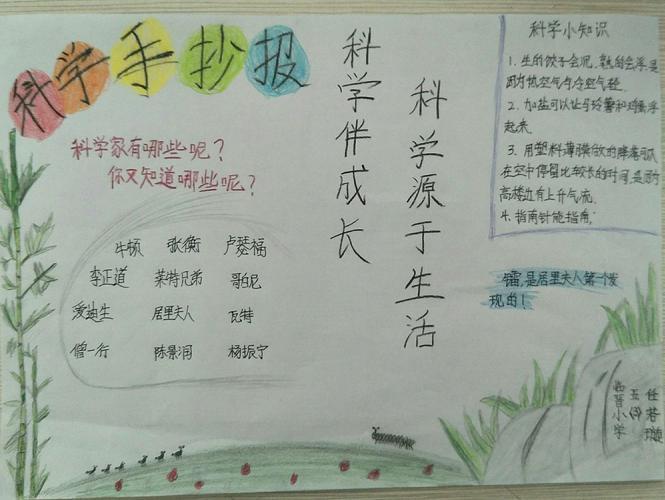 科学手抄报
科学家有哪些呢？
你又知道哪些呢？
牛顿 张衡 卢瑟福
李正道 莱特兄弟 哥白尼
爱迪生 居里夫人 瓦特
僧一行 陈景润 杨振宁
科学伴成长
科学源于生活
科学小知识
1. 生的饺子会沉，熟的会浮是
因为热空气与冷空气轻.
2. 加盐可以让马铃薯和鸡蛋浮
起来.
3. 用塑料薄膜做的降落伞
在空中停留比较长的时间，是因为
高楼边有上升气流.
4. 指南针能指南.
镭，是居里夫人第一个发
现的！
临晋小学
五
任若璇